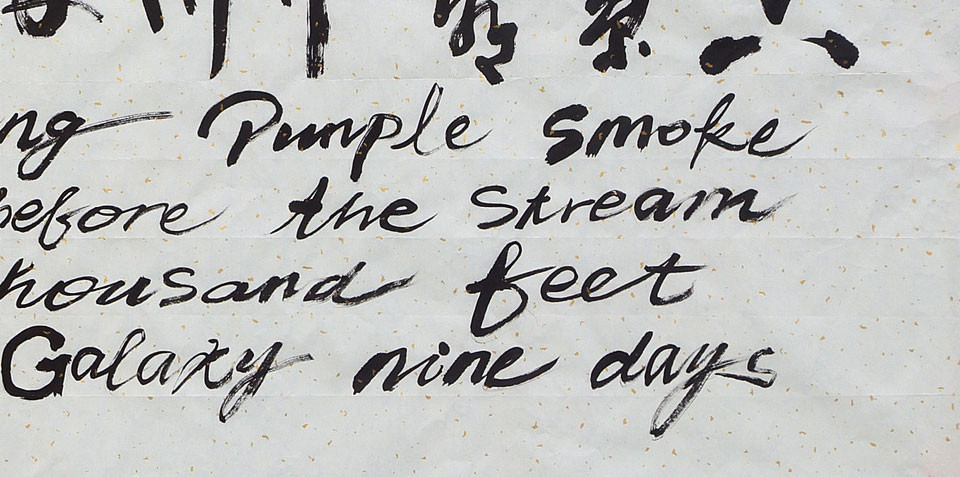 ng Purple Smoke
before the Stream
housand feet
Galaxy nine days